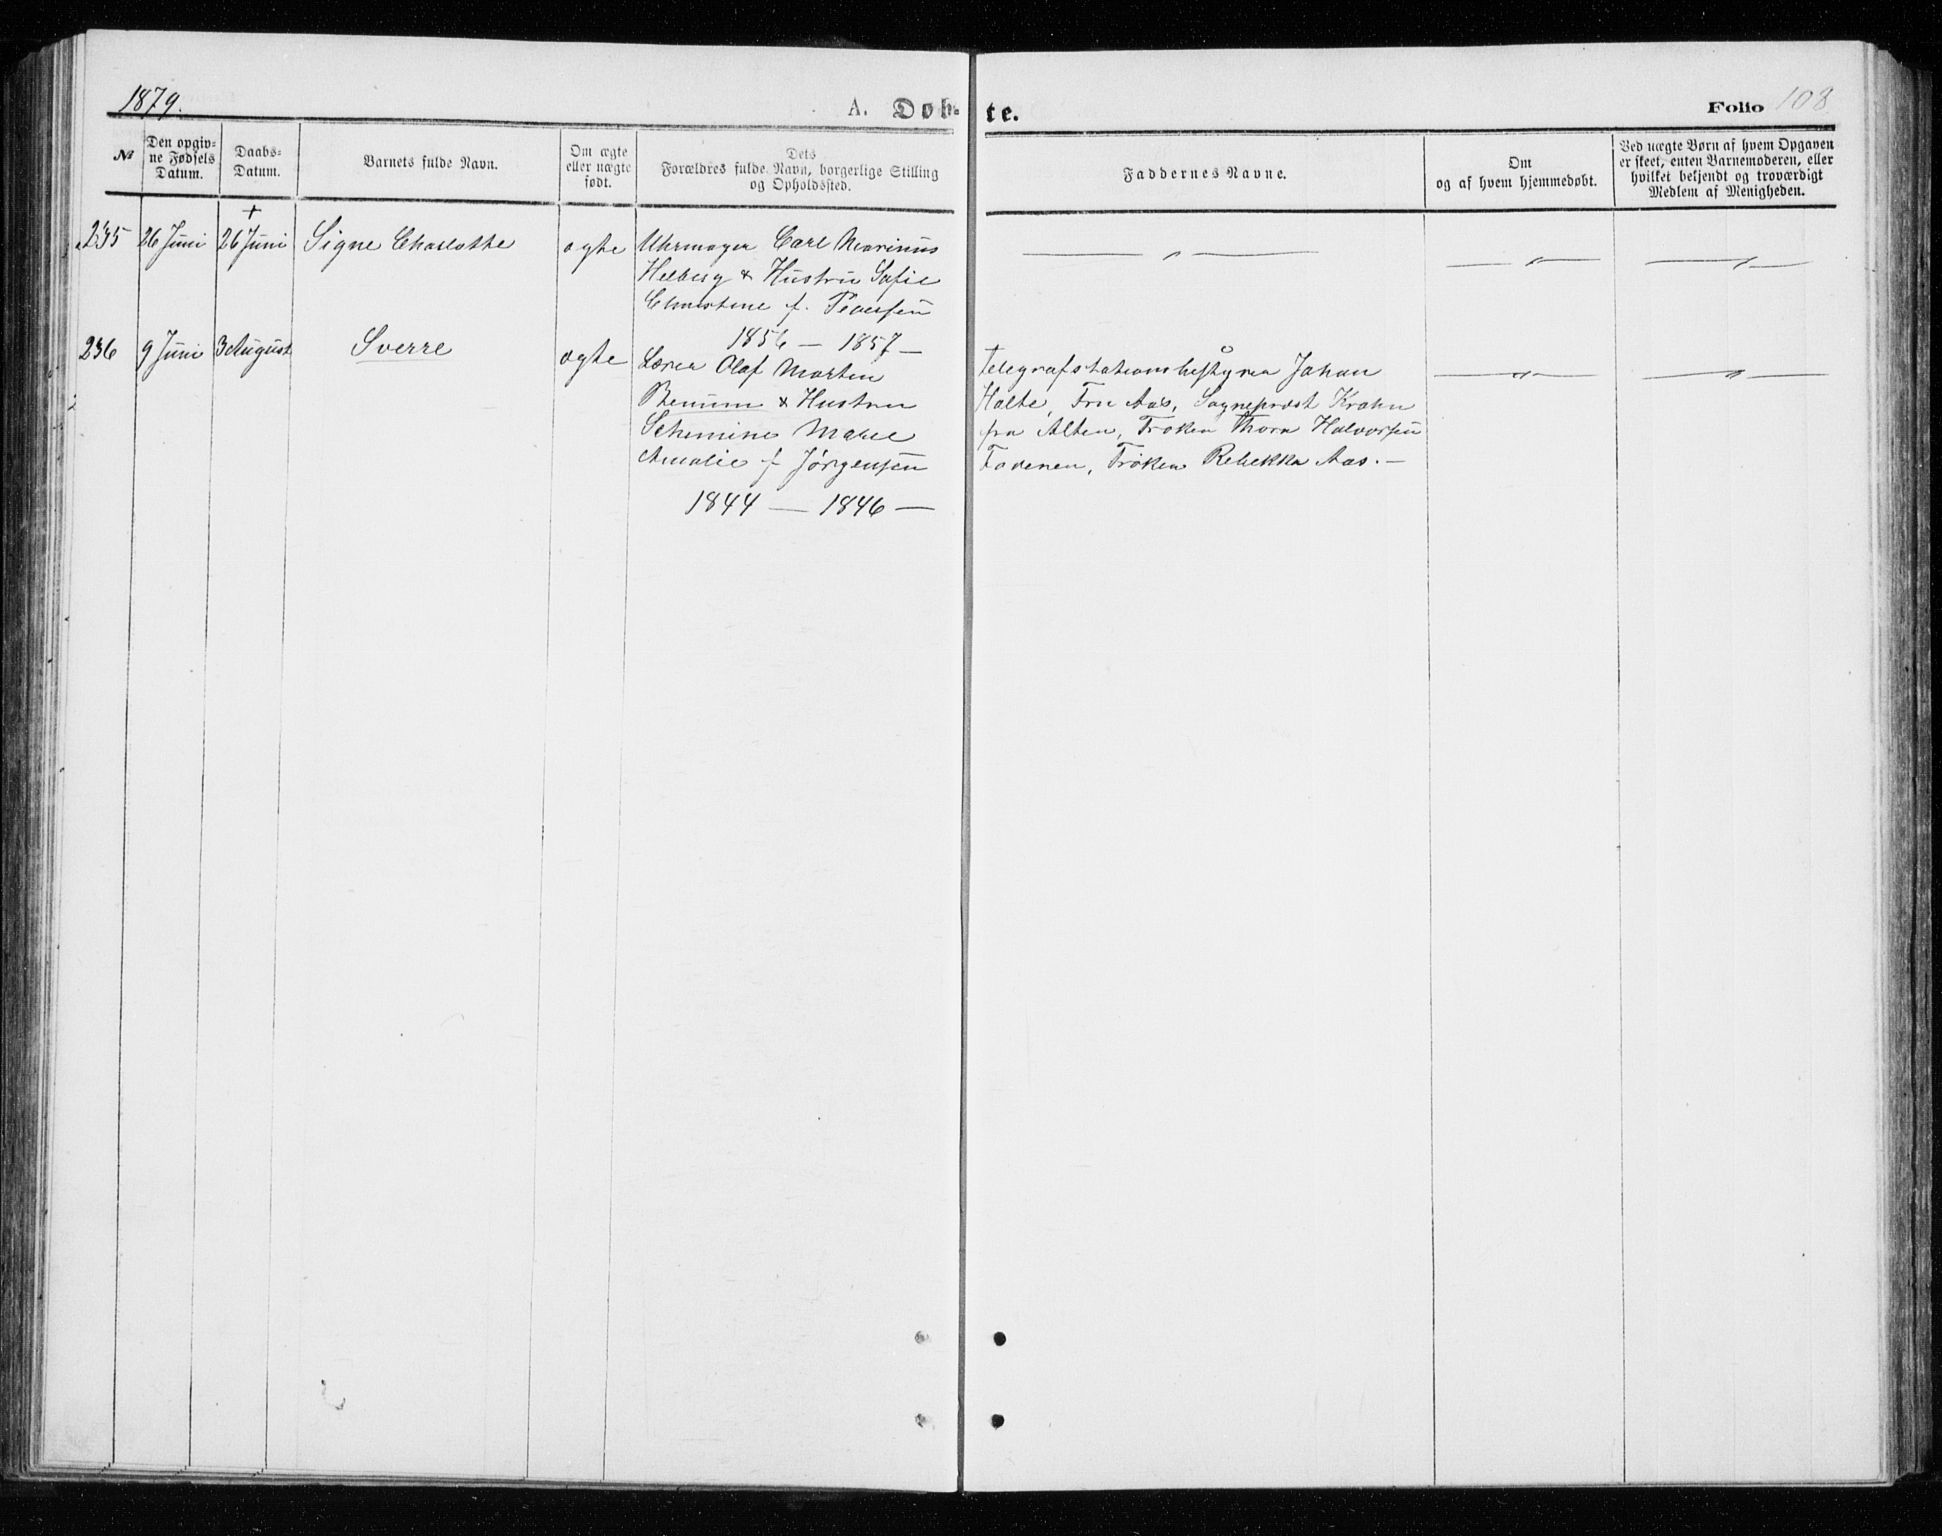 1879.
A. Døb- te.
Folio 108
№
Den opgiv-
ne Fødsels
Datum.
Daabs-
Datum.
Barnets fulde Navn.
Om ægte
eller uægte
født.
Dets
Forældres fulde Navn, borgerlige Stilling
og Opholdssted.
Faddernes Navne.
Om
og af hvem hjemmedøbt.
Ved uægte Børn af hvem Opgaven
er skeet, enten Barnemoderen, eller
hvilket bekjendt og troværdigt
Medlem af Menigheden.
+
235 26 Juni 26 Juni Signe Charlotte ægte Uhrmager Carl Marinus
Helberg & Hustru Sofie
Christine f. Pedersen
1856 — 1857 —
236 9 Juni 3 August Sverre ægte Lærer Olaf Morten
Benum & Hustru
Marie
Amalie f Jørgensen
1844 — 1846 —
Telegrafstationsbestyrer Johan
Holte, Fru Aas, Sogneprest Krohn
fra Alten, Frøken Thora Halvorsen
Faderen, Frøken Rebekka Aas. —